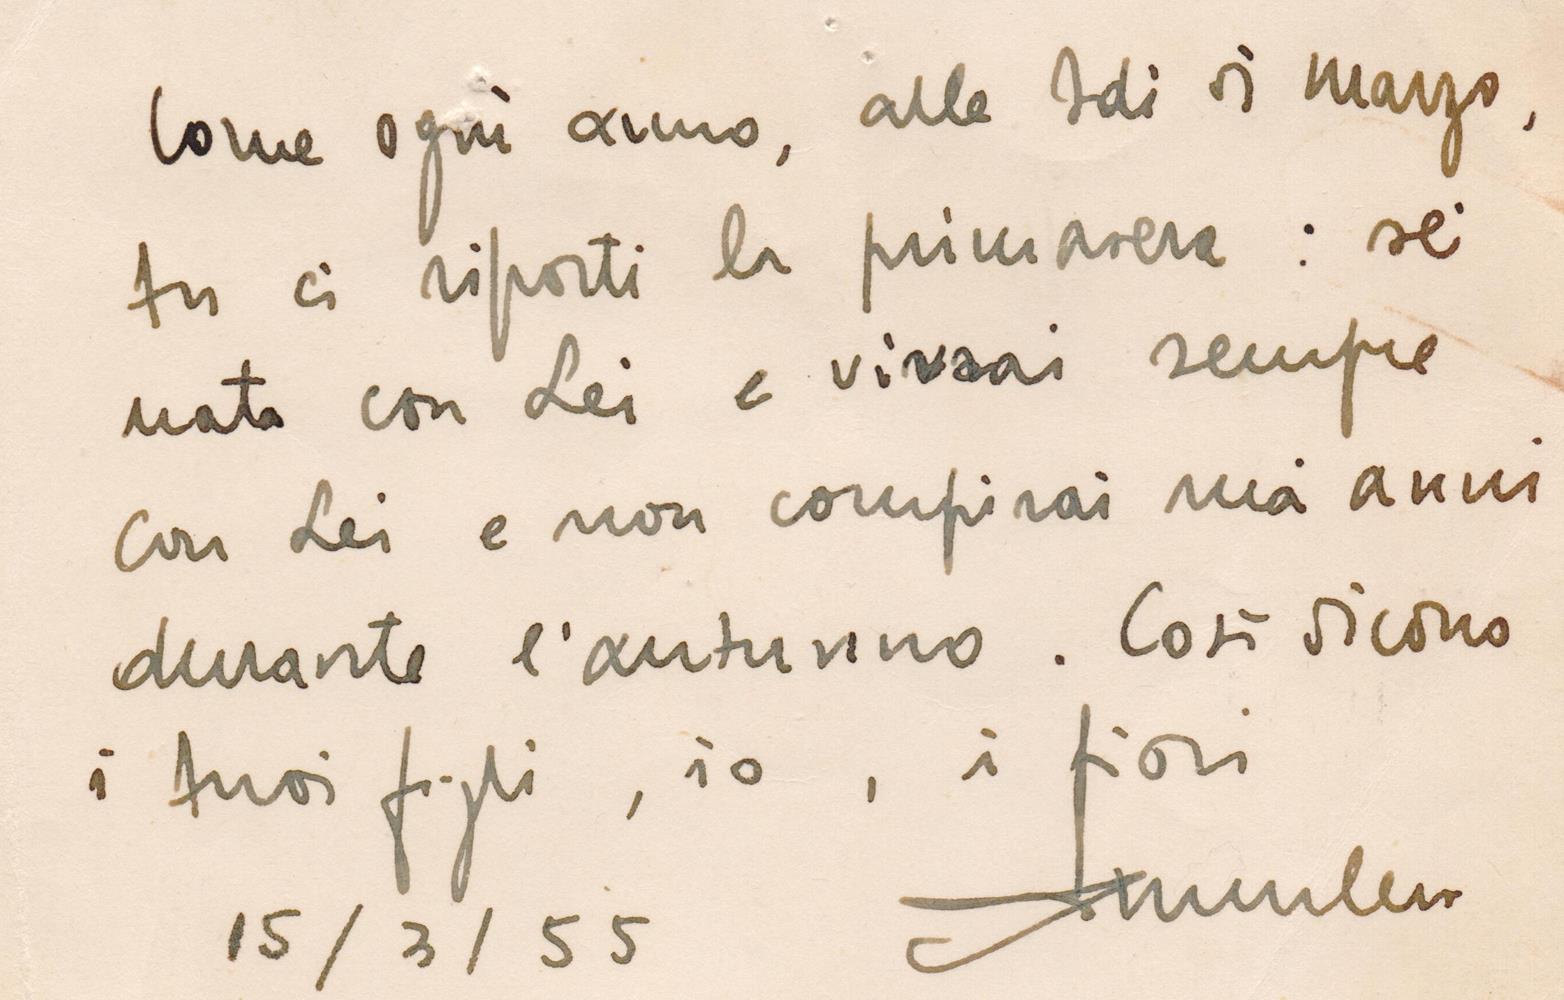 Come ogni anno, alle Idi di marzo,
tu ci riporti la primavera : sei
nata con Lei e vivrai sempre
con Lei e non compirai mai anni
durante l'autunno. Così dicono
i tuoi figli, io, i fiori
15/3/55